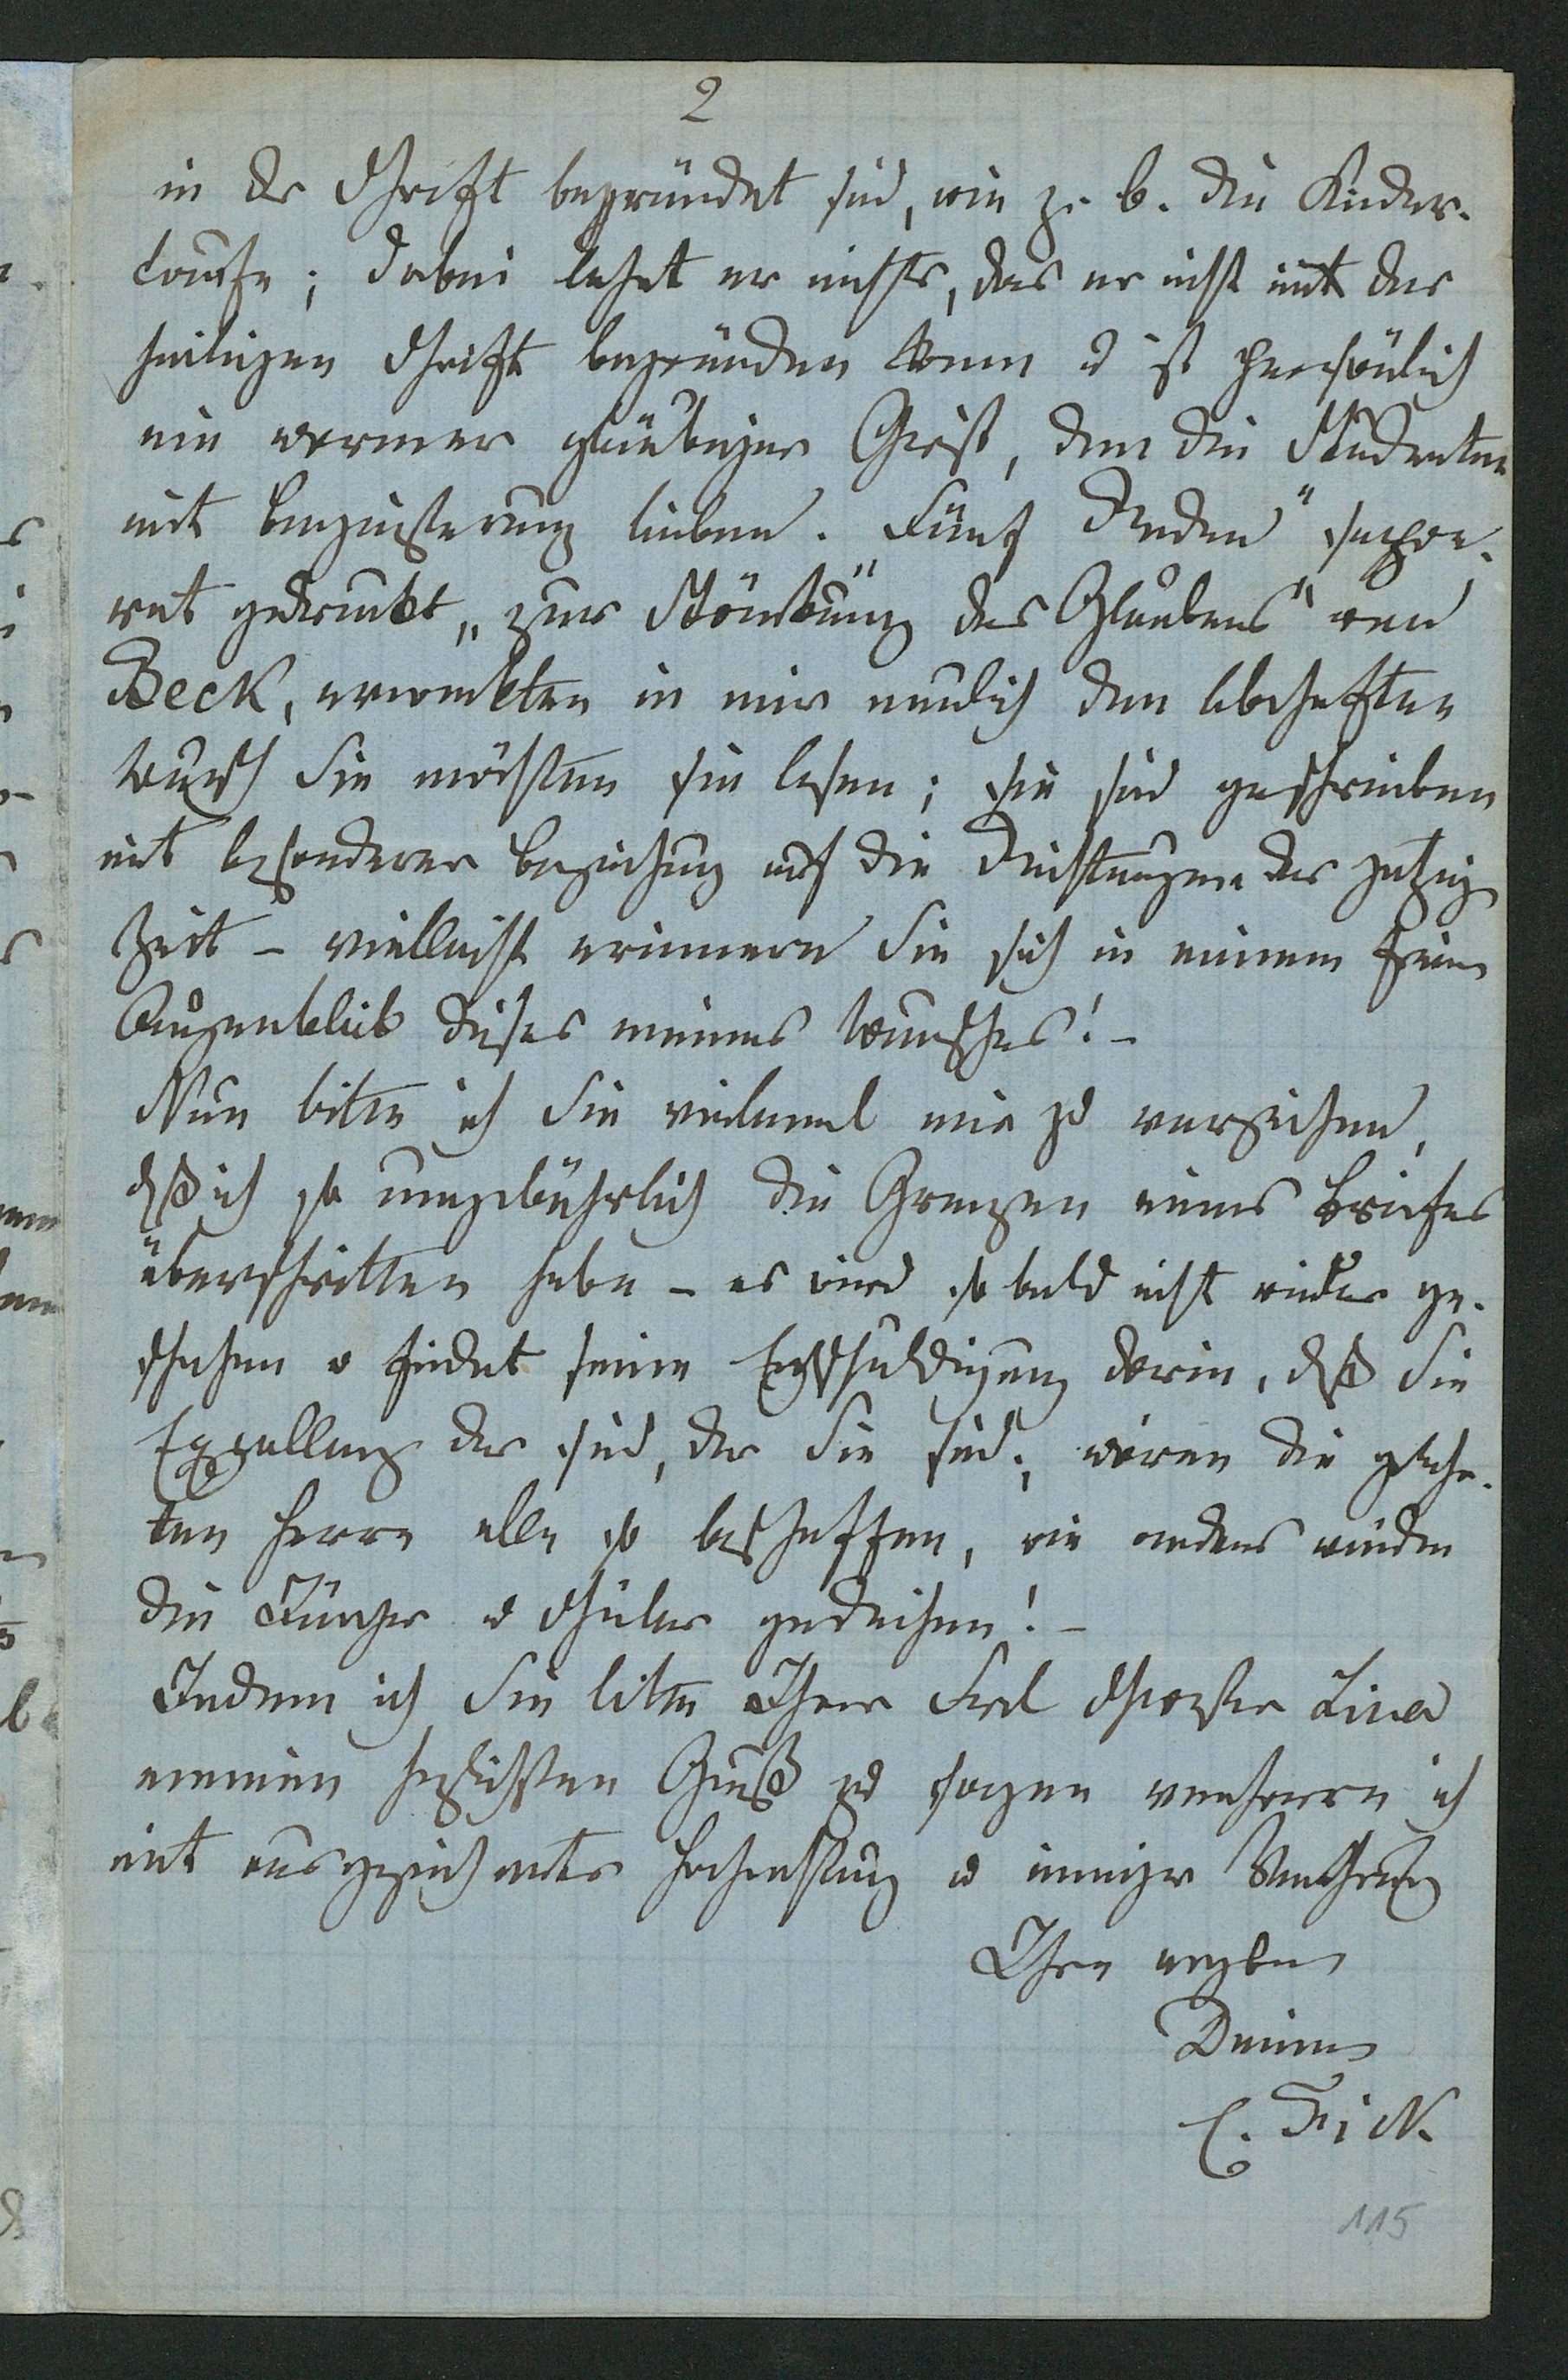 2
in der Schrift begründet sind, wie z. B. die Kinder-
taufe; dabei lehrt er nichts, das er nicht mit der
heiligen Schrift begründen kann u ist persönlich
ein warmer gläubiger Christ, den die Studenten
mit Begeisterung lieben. Fünf Reden" sepa-
rat gedruckt, „zur Stärkung des Glaubens" von
Beck, erweckten in mir neulich den lebhaften
Wunsch Sie möchten sie lesen; sie sind geschrieben
mit besonderer Beziehung auf die Richtungen der jetzig
Zeit – vielleicht erinnern Sie sich in einem freien
Augenblick dieses meines Wunsches! –
Nun bitte ich Sie vielmal mir zu verzeihen,
dß ich so ungebührlich die Grenzen eines Briefes
überschritten habe – es wird so bald nicht wieder ge-
schehen u findet seine Entschuldigung darin, dß Sie
Excellenz der sind, der Sie sind; wären die gelehr-
ten Herrn alle so beschaffen, wie anders würden
die Jünger u Schüler gedeihen! –
Indem ich Sie bitte Ihrer Frl Schwester Lina
meinen herzlichsten Gruß zu sagen verharre ich
mit ausgezeichneter Hochachtung u inniger Verehrung
Ihr ergeben
Diener
C. Fick.
115